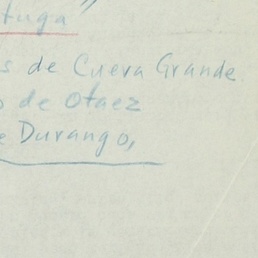 tuga"
s de Cueva Grande
o de Otaez
e Durango,